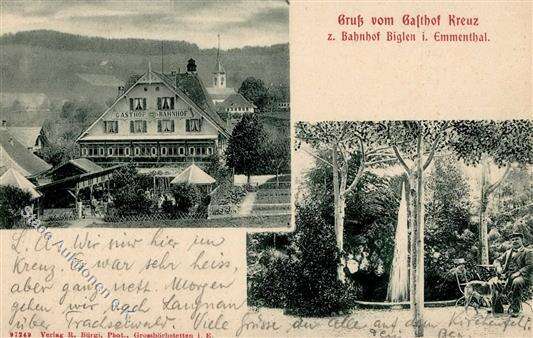 Gruß vom Gasthof Kreuz
z. Bahnhof Biglen i. Emmenthal.
GASTHOF BAHNHOF
L. A. Wir sind hier im
Kreuz, es war sehr heiss,
aber ganz nett. Morgen
gehen wir nach Langnau
über Trachselwald. Viele Grüsse an alle auf dem Kirchenfeld
97249 Verlag R. Bürgi, Phot., Grosshöchstetten i. E.